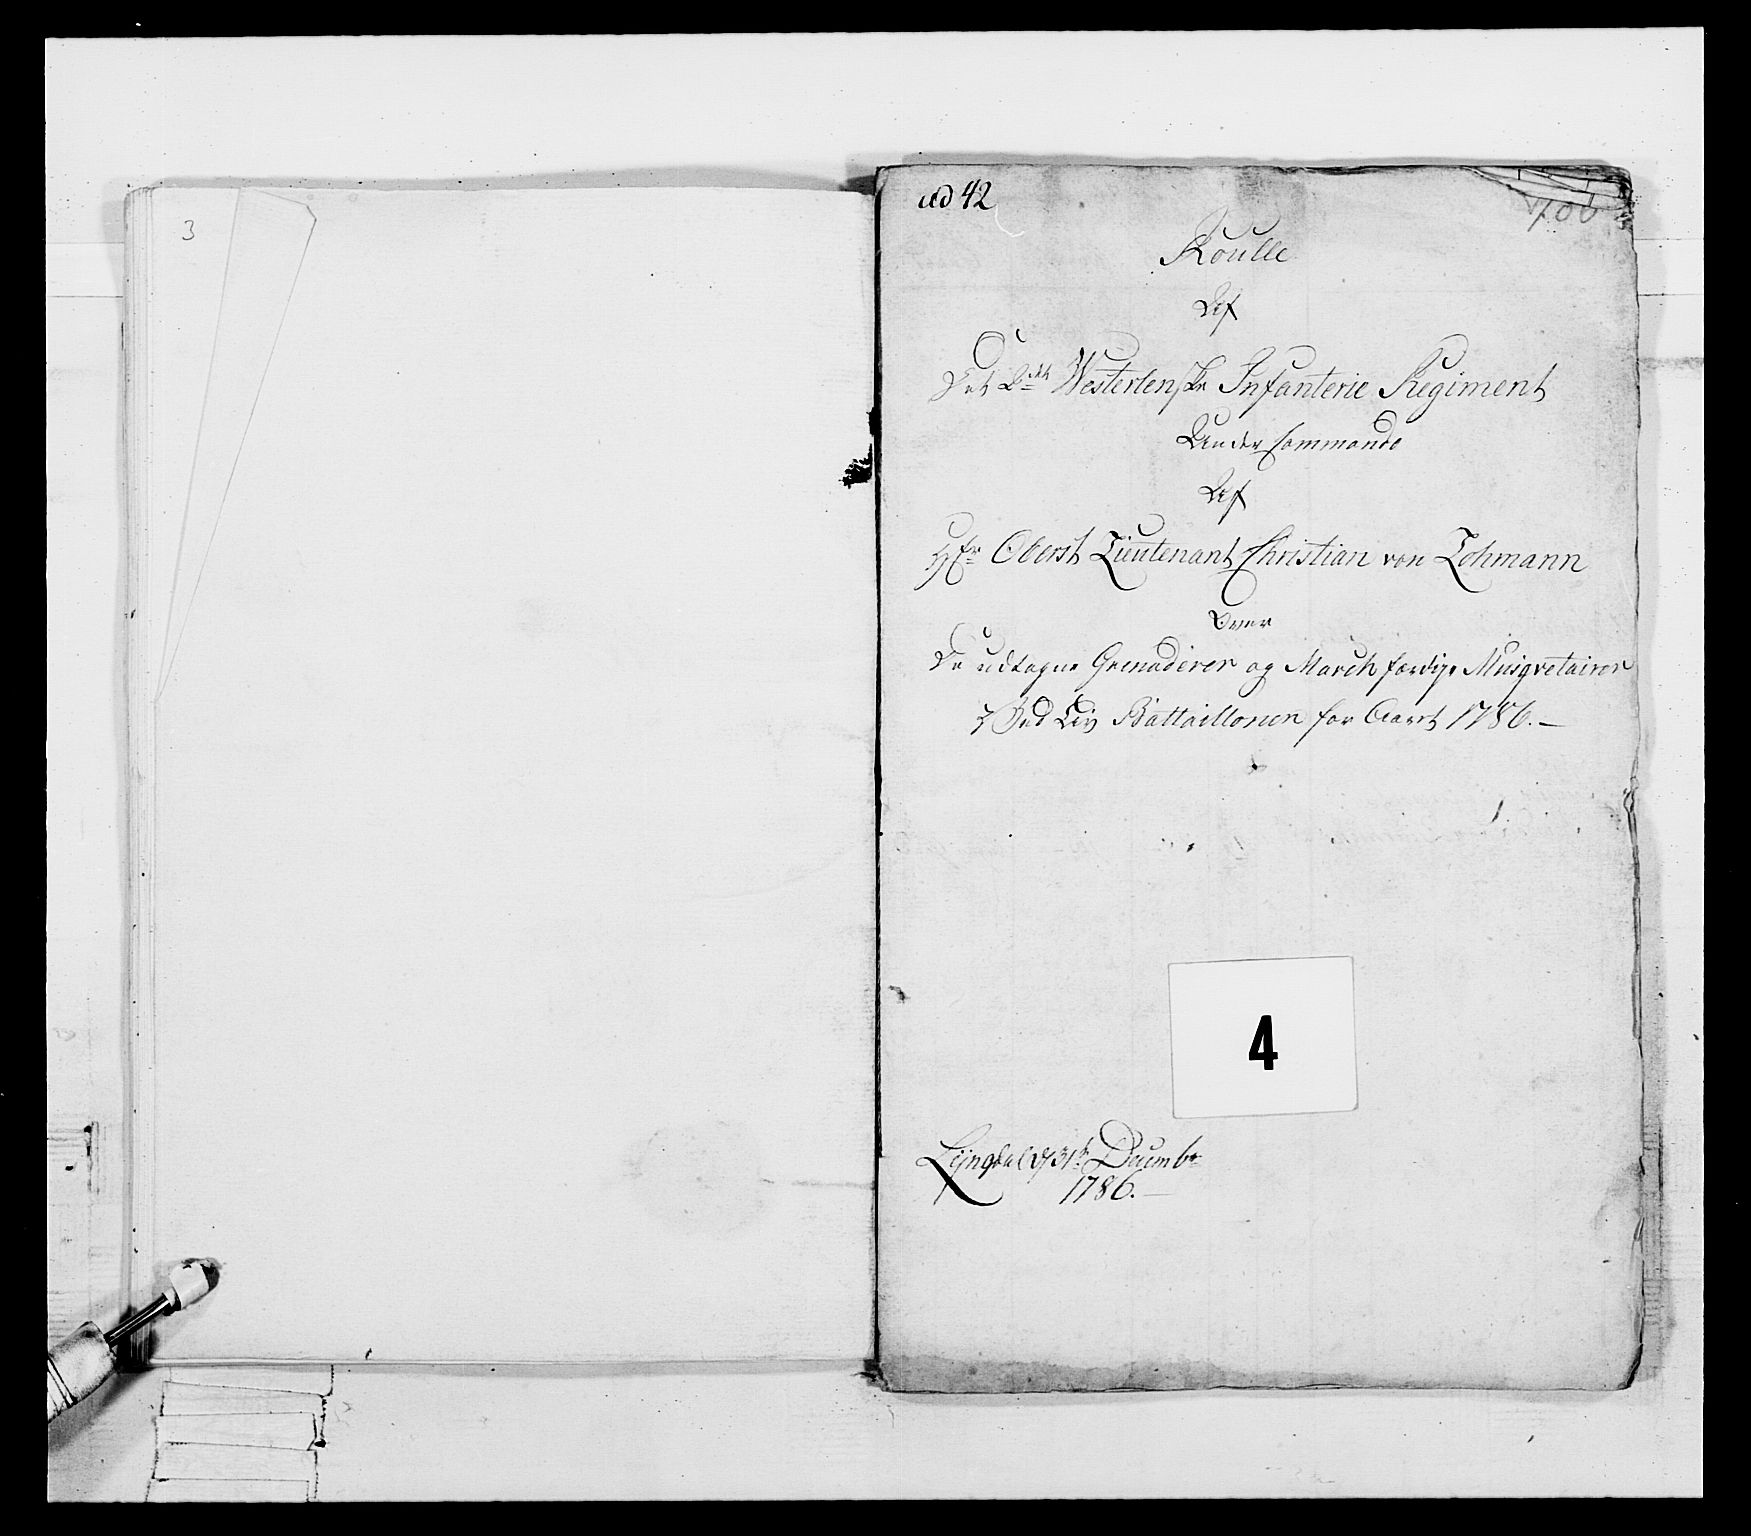 3
ad 42
Roulle
Af
Det 2det Westerlenske Infanterie Regiment
Under Commando
Af
Hr Oberst Lieutenant Christian von Lohmann
Over
De udtagne Grenaderer og March færdige Musqvetairer
Ved Liv Battaillonen for Aaret 1786.
4
Lyngdal d 31te Decembr
1786.